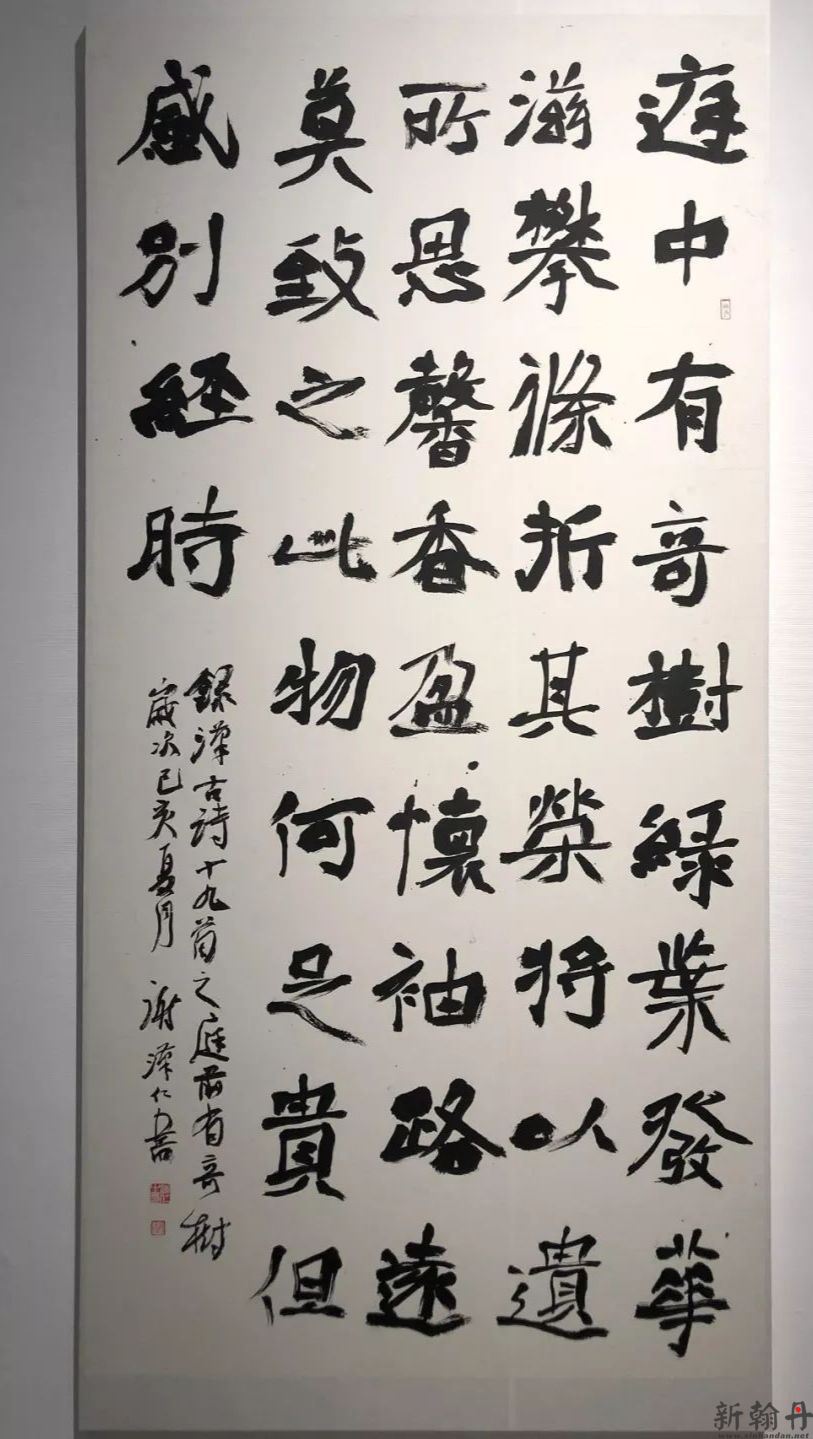 庭中有奇樹緑葉發華
滋攀條折其榮將以遺
所思馨香盈懷袖路遠
莫致之此物何足貴但
感別經時
録漢古詩十九首之庭前有奇樹
歲次己亥夏月 謝澤仁書
新翰丹
www.xinhandan.net